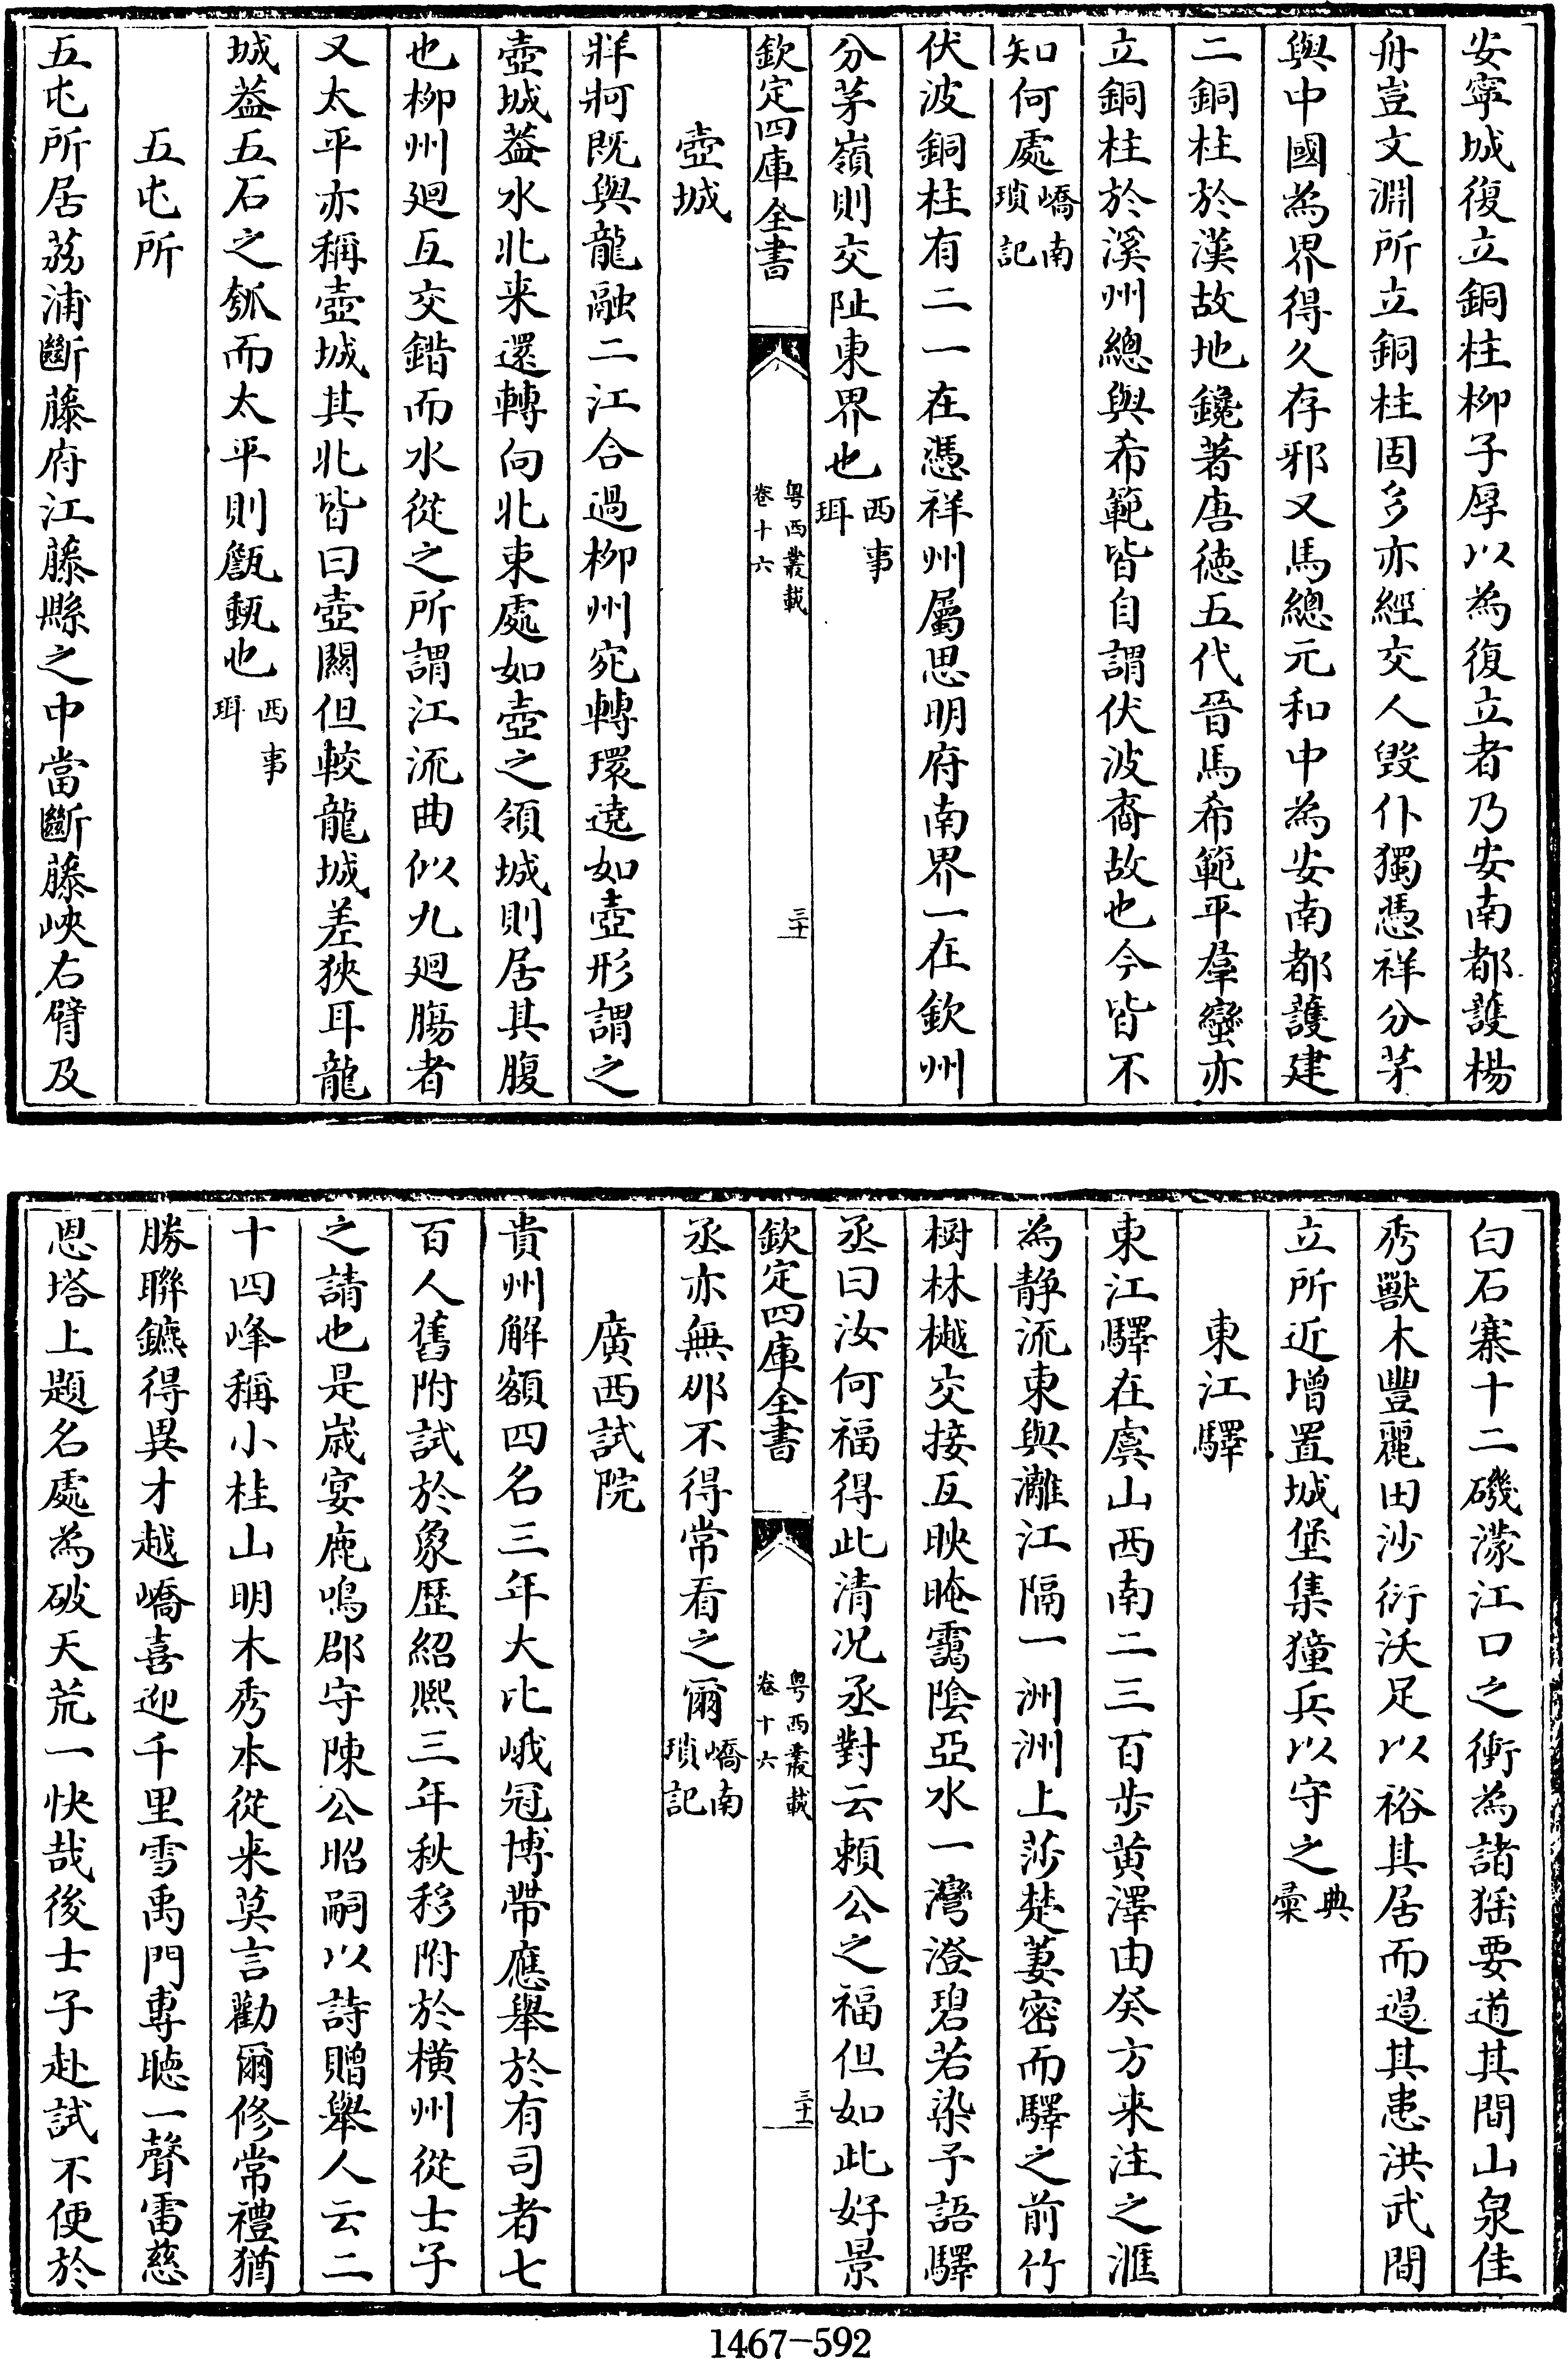 安寧城復立銅柱柳子厚以為復立者乃安南都護楊
舟豈文淵所立銅柱固多亦經交人毀仆獨憑祥分茅
與中國為界得久存邪又馬總元和中為安南都護建
二銅柱於漢故地鑱著唐徳五代晉馬希範平羣蠻亦
立銅柱於溪州總與希範皆自謂伏波裔故也今皆不
知何處嶠南瑣記
伏波銅柱有二一在憑祥州屬思明府南界一在欽州
分茅嶺則交阯東界也西事珥
欽定四庫全書
粤西叢載
卷十六
三十
壺城
牂牁既與龍融二江合過柳州宛轉環遶如壺形謂之
壺城葢水北来還轉向北東處如壺之領城則居其腹
也柳州廻互交錯而水從之所謂江流曲似九廻膓者
又太平亦稱壺城其北皆曰壺闗但較龍城差狹耳龍
城葢五石之瓠而太平則甔甀也西事珥
五屯所
五屯所居荔浦斷藤府江藤縣之中當斷藤峽右臂及
白石寨十二磯濛江口之衝為諸猺要道其間山泉佳
秀獸木豐麗田沙衍沃足以裕其居而遏其患洪武間
立所近增置城堡集獞兵以守之典彚
東江驛
東江驛在虞山西南二三百步黄澤由癸方来注之滙
為静流東與灕江隔一洲洲上莎楚萋密而驛之前竹
樹林樾交接互映晻靄陰亞水一灣澄碧若染予語驛
丞曰汝何福得此清况丞對云頼公之福但如此好景
欽定四庫全書
粤西叢載
卷十六
三十一
丞亦無那不得常看之爾嶠南瑣記
廣西試院
貴州解額四名三年大比峨冠博帶應舉於有司者七
百人舊附試於象歴紹熙三年秋移附於橫州從士子
之請也是歳宴鹿鳴郡守陳公昭嗣以詩贈舉人云二
十四峰稱小桂山明木秀本從来莫言勸爾修常禮猶
勝聯鑣得異才越嶠喜迎千里雪禹門專聴一聲雷慈
恩塔上題名處為破天荒一快哉後士子赴試不便於
1467-592